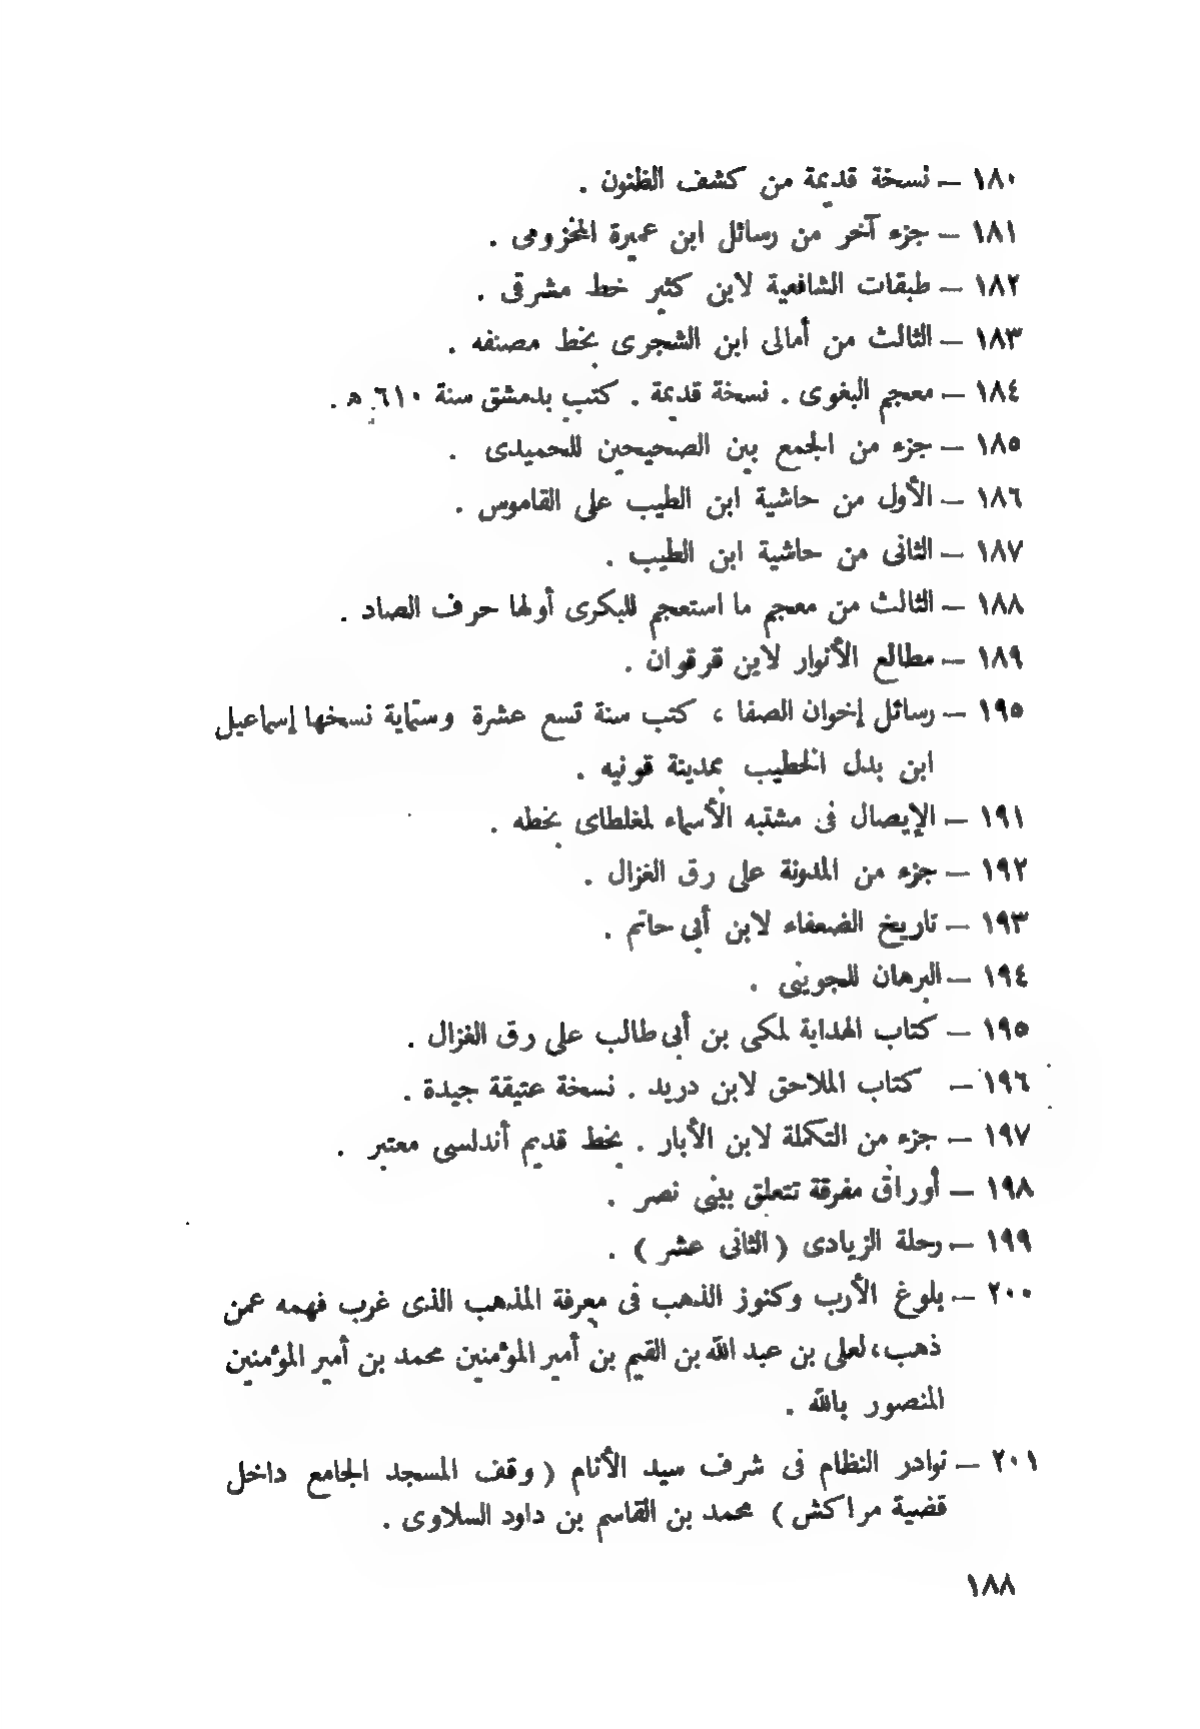 ١٨٠ – نسخة قديمة من كشف الظنون .
١٨١ – جزء آخر من رسائل ابن عميرة المخزومى .
١٨٢ – طبقات الشافعية لابن كثير خط مشرقى .
١٨٣ – الثالث من أمالى ابن الشجرى بخط مصنفه .
١٨٤ – معجم البغوى . نسخة قديمة . كتب بدمشق سنة ٦١٠ ه .
١٨٥ – جزء من الجمع بين الصحيحين للحميدى .
١٨٦ – الأول من حاشية ابن الطيب على القاموس .
١٨٧ – الثانى من حاشية ابن الطيب .
١٨٨ – الثالث من معجم ما استعجم للبكرى أولها حرف الصاد .
١٨٩ – مطالع الأنوار لابن قرقوان .
١٩٥ – رسائل إخوان الصفا ، كتب سنة تسع عشرة وستماية نسخها إسماعيل
ابن بدل الخطيب بمدينة قونيه .
١٩١ – الإيصال فى مشتبه الأسماء لمغلطاى بخطه .
١٩٢ – جزء من المدونة على رق الغزال .
١٩٣ – تاريخ الضعفاء لابن أبى حاتم .
١٩٤ – البرهان للجوينى .
١٩٥ – كتاب الهداية لمكى بن أبى طالب على رق الغزال .
١٩٦ – كتاب الملاحق لابن دريد . نسخة عتيقة جيدة .
١٩٧ – جزء من التكملة لابن الأبار . بخط قديم أندلسى معتبر .
١٩٨ – أوراق مفرقة تتعلق ببنى نصر .
١٩٩ – رحلة الزيادى ( الثانى عشر ) .
٢٠٠ – بلوغ الأرب وكنوز الذهب فى معرفة المذهب الذى غرب فهمه عمن
ذهب، لعلى بن عبد الله بن القيم بن أمير المؤمنين محمد بن أمير المؤمنين
المنصور بالله .
٢٠١ – نوادر النظام فى شرف سيد الأنام ( وقف المسجد الجامع داخل
قضية مراكش ) محمد بن القاسم بن داود السلاوى .
١٨٨